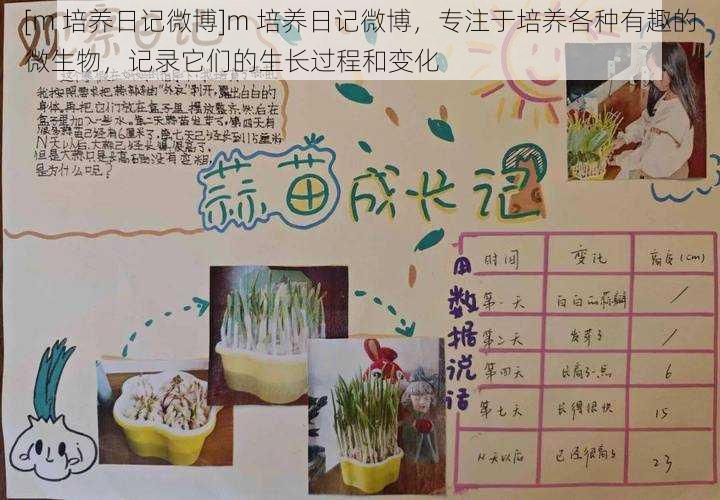 [m 培养日记微博]m 培养日记微博，专注于培养各种有趣的
微生物，记录它们的生长过程和变化
我按照要求把蒜都剥的"外衣"剥开,露出白白的
身体,再把它们放在盒子里,摆放整齐,然后在
盒子里加入一些水,第二天蒜苗生芽了,第四天有
苗已经有6厘米了,第七天已经长到15厘米
N天以后,大蒜已经长很高了,
但是大蒜只是长高
是为什么呢?
蒜苗成长记
用数据说话
时间 变化 高度(cm)
第一天 白白的蒜瓣 /
第二天 发芽了 /
第四天 长高了一点 6
第七天 长得很快 15
N天以后 已经很高了 23